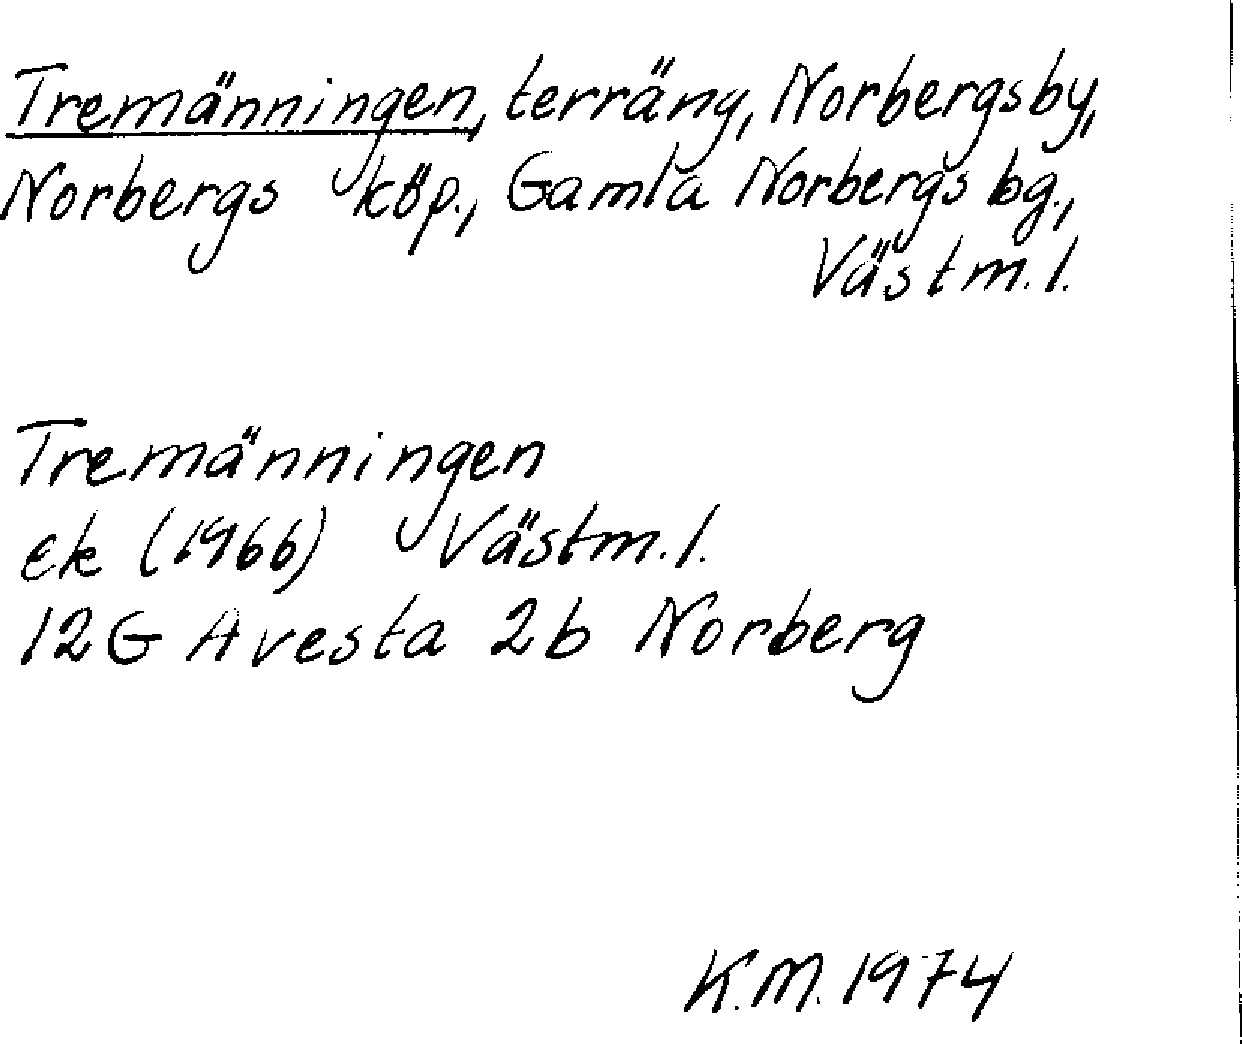 Tremänningen, terräng, Norbergsby,
Norbergs köp., Gamla Norbergs bg.,
Västm.l.
Tremänningen
ek (1966) Västm.l.
12G Avesta 2b Norberg
K.M. 1974